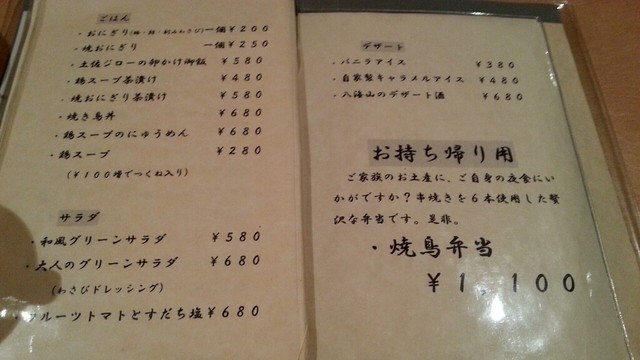 ごはん
・おにぎり(梅・鮭・刻みわさび)一個¥200
・焼おにぎり 一個¥250
・土佐ジローの卵かけ御飯 ¥580
・鶏スープ茶漬け ¥480
・焼おにぎり茶漬け ¥580
・焼き鳥丼 ¥680
・鶏スープのにゅうめん ¥680
・鶏スープ ¥280
(¥100増でつくね入り)
サラダ
・和風グリーンサラダ ¥580
・大人のグリーンサラダ ¥680
(わさびドレッシング)
・フルーツトマトとすだち塩¥680
デザート
・バニラアイス ¥380
・自家製キャラメルアイス ¥480
・八海山のデザート酒 ¥680
お持ち帰り用
ご家族のお土産に、ご自身の夜食にい
かがですか?串焼きを6本使用した贅
沢な弁当です。是非。
・焼鳥弁当
¥1,100